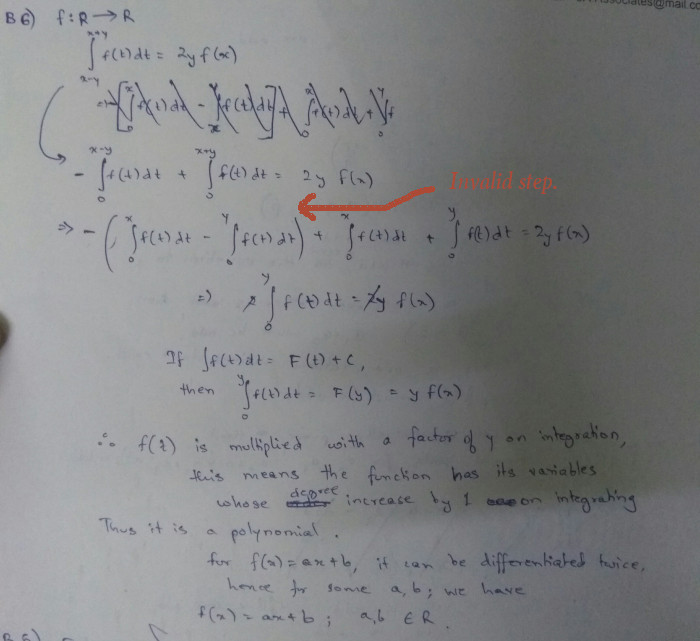 B6) f: R → R
∫_{x-y}^{x+y} f(t)dt = 2y f(x)
- ∫_0^{x-y} f(t)dt + ∫_0^{x+y} f(t)dt = 2y f(x)
Invalid step.
⇒ - ( ∫_0^x f(t)dt - ∫_0^y f(t)dt ) + ∫_0^x f(t)dt + ∫_0^y f(t)dt = 2y f(x)
⇒ 2 ∫_0^y f(t)dt = 2y f(x)
If ∫f(t)dt = F(t) + C,
then ∫_0^y f(t)dt = F(y) = y f(x)
∴ f(t) is multiplied with a factor of y on integration,
this means the function has its variables
whose degree increase by 1 on integrating
Thus it is a polynomial.
for f(x) = ax+b, it can be differentiated twice,
hence for some a, b; we have
f(x) = ax+b ; a,b ∈ R.